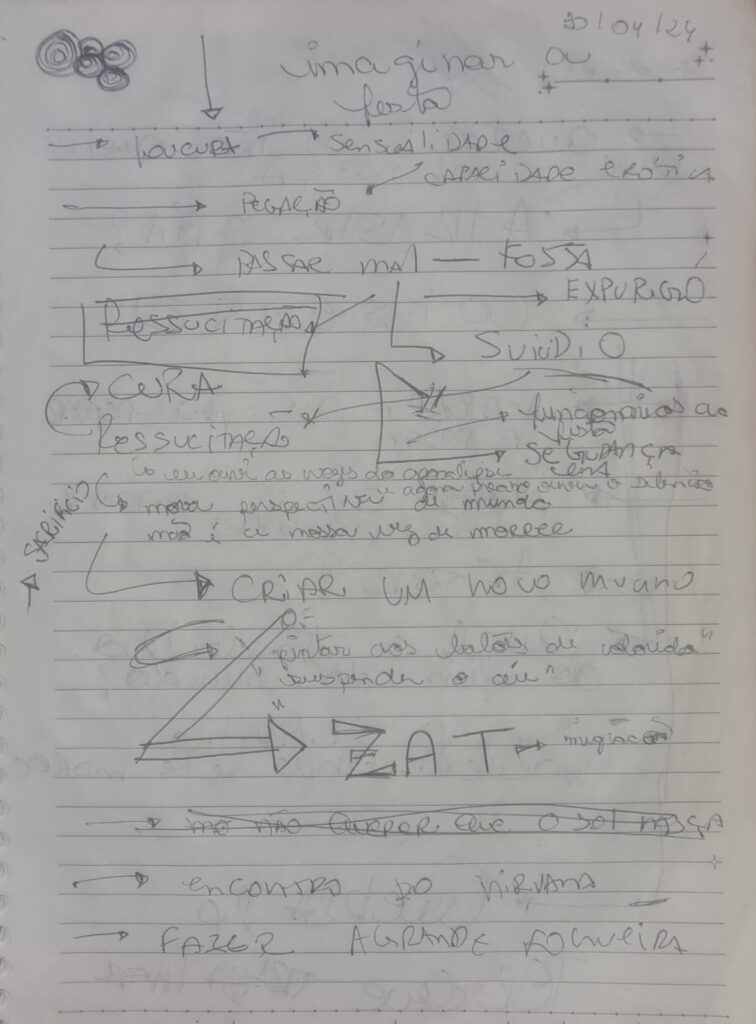 30/04/24
imaginar a
festa
LOUCURA SENSUALIDADE
CAPACIDADE ERÓTICA
PEGAÇÃO
PASSAR MAL — FOSSA
EXPURGO
RESSUCITAÇÃO
SUICÍDIO
CURA
funcionários da
festa
RESSUCITAÇÃO
SEGURANÇA
"eu ouvi as do apocalipse
agora quero ouvir o silêncio"
nova perspectiva de mundo
não é a nossa vez de morrer
SACRIFÍCIO
CRIAR UM NOVO MUNDO
"pintar dos balões de colorido"
"suspender o céu"
ZAT migração
NO NÃO QUERER QUE O SOL NASÇA
ENCONTRO DO NIRVANA
FAZER A GRANDE FOGUEIRA